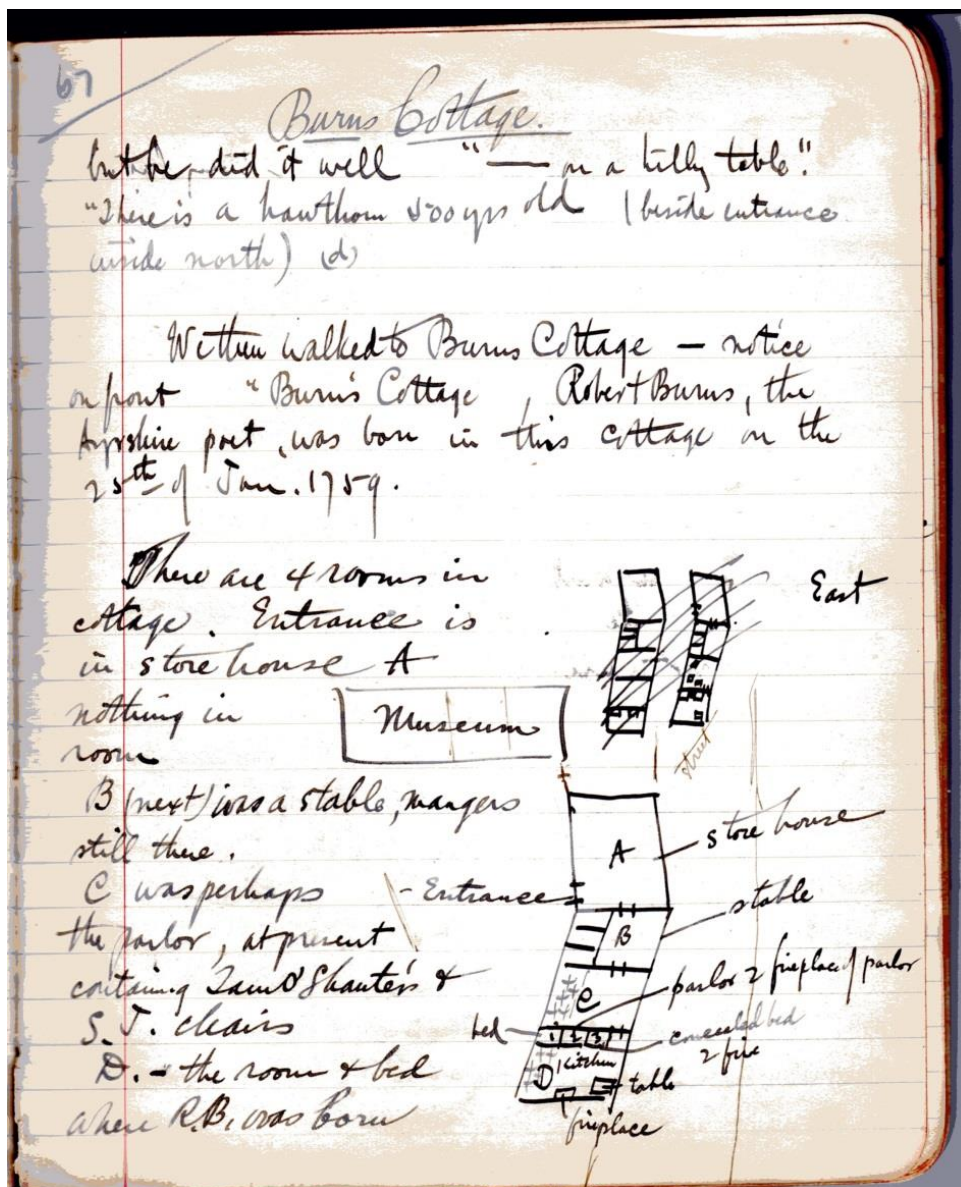 67
Burns Cottage.
but he did it well "— on a hilly table."
"There is a hawthorn 500 yrs old (beside entrance
inside north) (d)
We then walked to Burns Cottage — notice
on front "Burns Cottage, Robert Burns, the
Ayrshire poet, was born in this cottage on the
25th of Jan. 1759.
There are 4 rooms in
cottage. Entrance is
in store house A
nothing in
room
B (next) was a stable, mangers
still there.
C was perhaps
the parlor, at present
containg Tam O'Shanter's &
S. J. chairs
D. - the room & bed
where R.B. was born
East
street
Museum
A
store house
- Entrance
B
stable
C
parlor 2 fireplace of parlor
bed
1 2 3
concealed bed
2 fire
D
Kitchen
table
fireplace